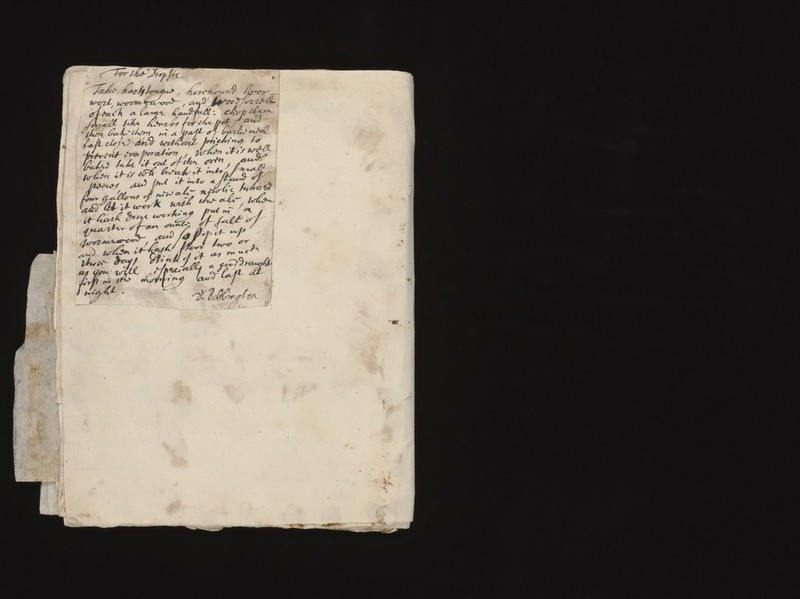 For the Dropsie
Take hartstongue, horehound liver
wort, wormwood, and Woodsorrell
of each a large handfull: chop them
small like hearbs for the pot, and
then bake them in a past of barlie meal
past close and without pricking to
prevent evaporation, when it is well
baked take it out of the oven, and
when it is cold break it into small
peeces, and put it into a stand of
four gallons of new ale newlie tunned
and let it work with the ale, when
it hath done working put in a
quarter of an ounce of salt of
wormwood and stop it up
and when it hath stood two or
three days drink of it as much
as you will, especially a good draught
first in the morning and last at
night.
Dr. Bobbington